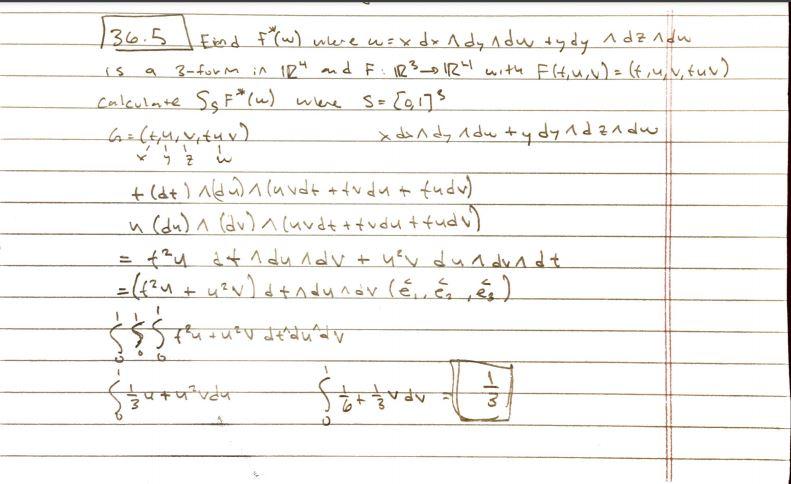 36.5 Find F*(ω) where ω = x dx ∧ dy ∧ dw + y dy ∧ dz ∧ dw
is a 3-form in ℝ⁴ and F: ℝ³→ℝ⁴ with F(t,u,v) = (t,u,v,tuv)
Calculate ∫_S F*(ω) where S = [0,1]³
G = (t,u,v,tuv) x dx ∧ dy ∧ dw + y dy ∧ dz ∧ dw
x y z w
t (dt) ∧ (du) ∧ (uvdt + tvdu + tudv)
u (du) ∧ (dv) ∧ (uvdt + tvdu + tudv)
= t²u dt ∧ du ∧ dv + u²v du ∧ dv ∧ dt
= (t²u + u²v) dt ∧ du ∧ dv (e₁, e₂, e₃)
∫₀¹ ∫₀¹ ∫₀¹ t²u + u²v dt ∧ du ∧ dv
∫₀¹ 1/3 u + u²v du ∫₀¹ 1/6 + 1/3 v dv = 1/3